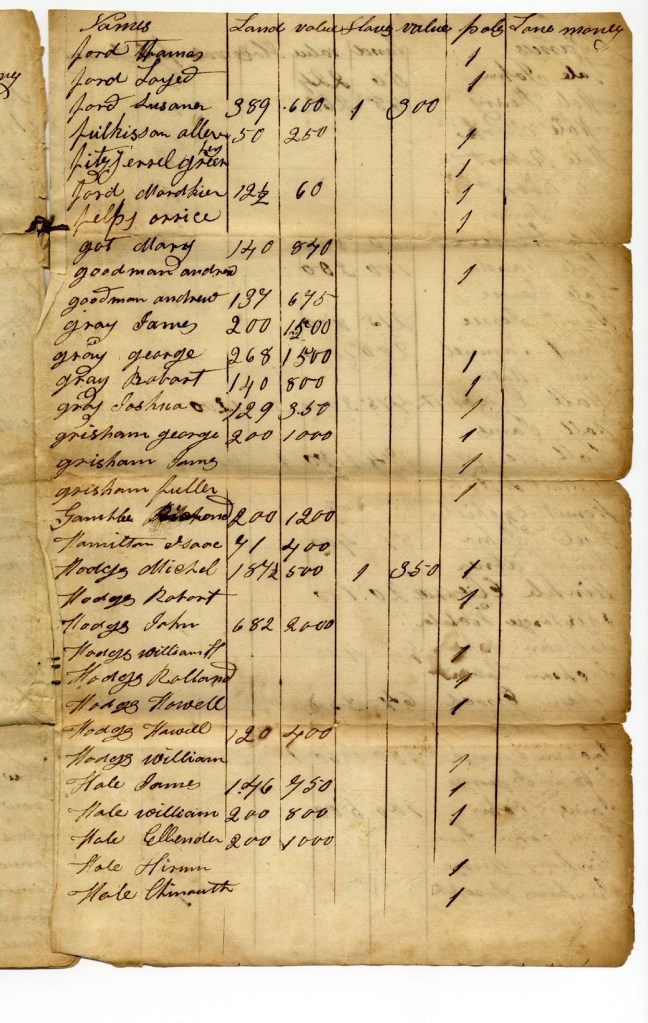 Names Land value Slaves value pole Town money
ford Thamas 1
ford Loyed 1
ford Susaner 389 600 1 300
fulkisson allen 50 250 1
fitzjerrel green 1
ford Mordkier 12½ 60 1
felps orrice 1
got Mary 140 840
goodman andrew 1
goodman andrew 137 675
gray James 200 1500
gray george 268 1500 1
gray Robart 140 800 1
gray Joshua 129 350 1
grisham george 200 1000 1
grisham James 1
grisham fuller 1
Gamble 200 1200
Hamilton Isaac 71 400
Hodges Michel 187½ 500 1 350 1
Hodges Robart 1
Hodges John 682 2000
Hodges william H 1
Hodges Rolland 1
Hodges Howell 1
Hodges Howell 120 400
Hodges william 1
Hale James 146 750 1
Hale william 200 800 1
Hale Ellender 200 1000
Hale Hirum 1
Hale Chinouth 1